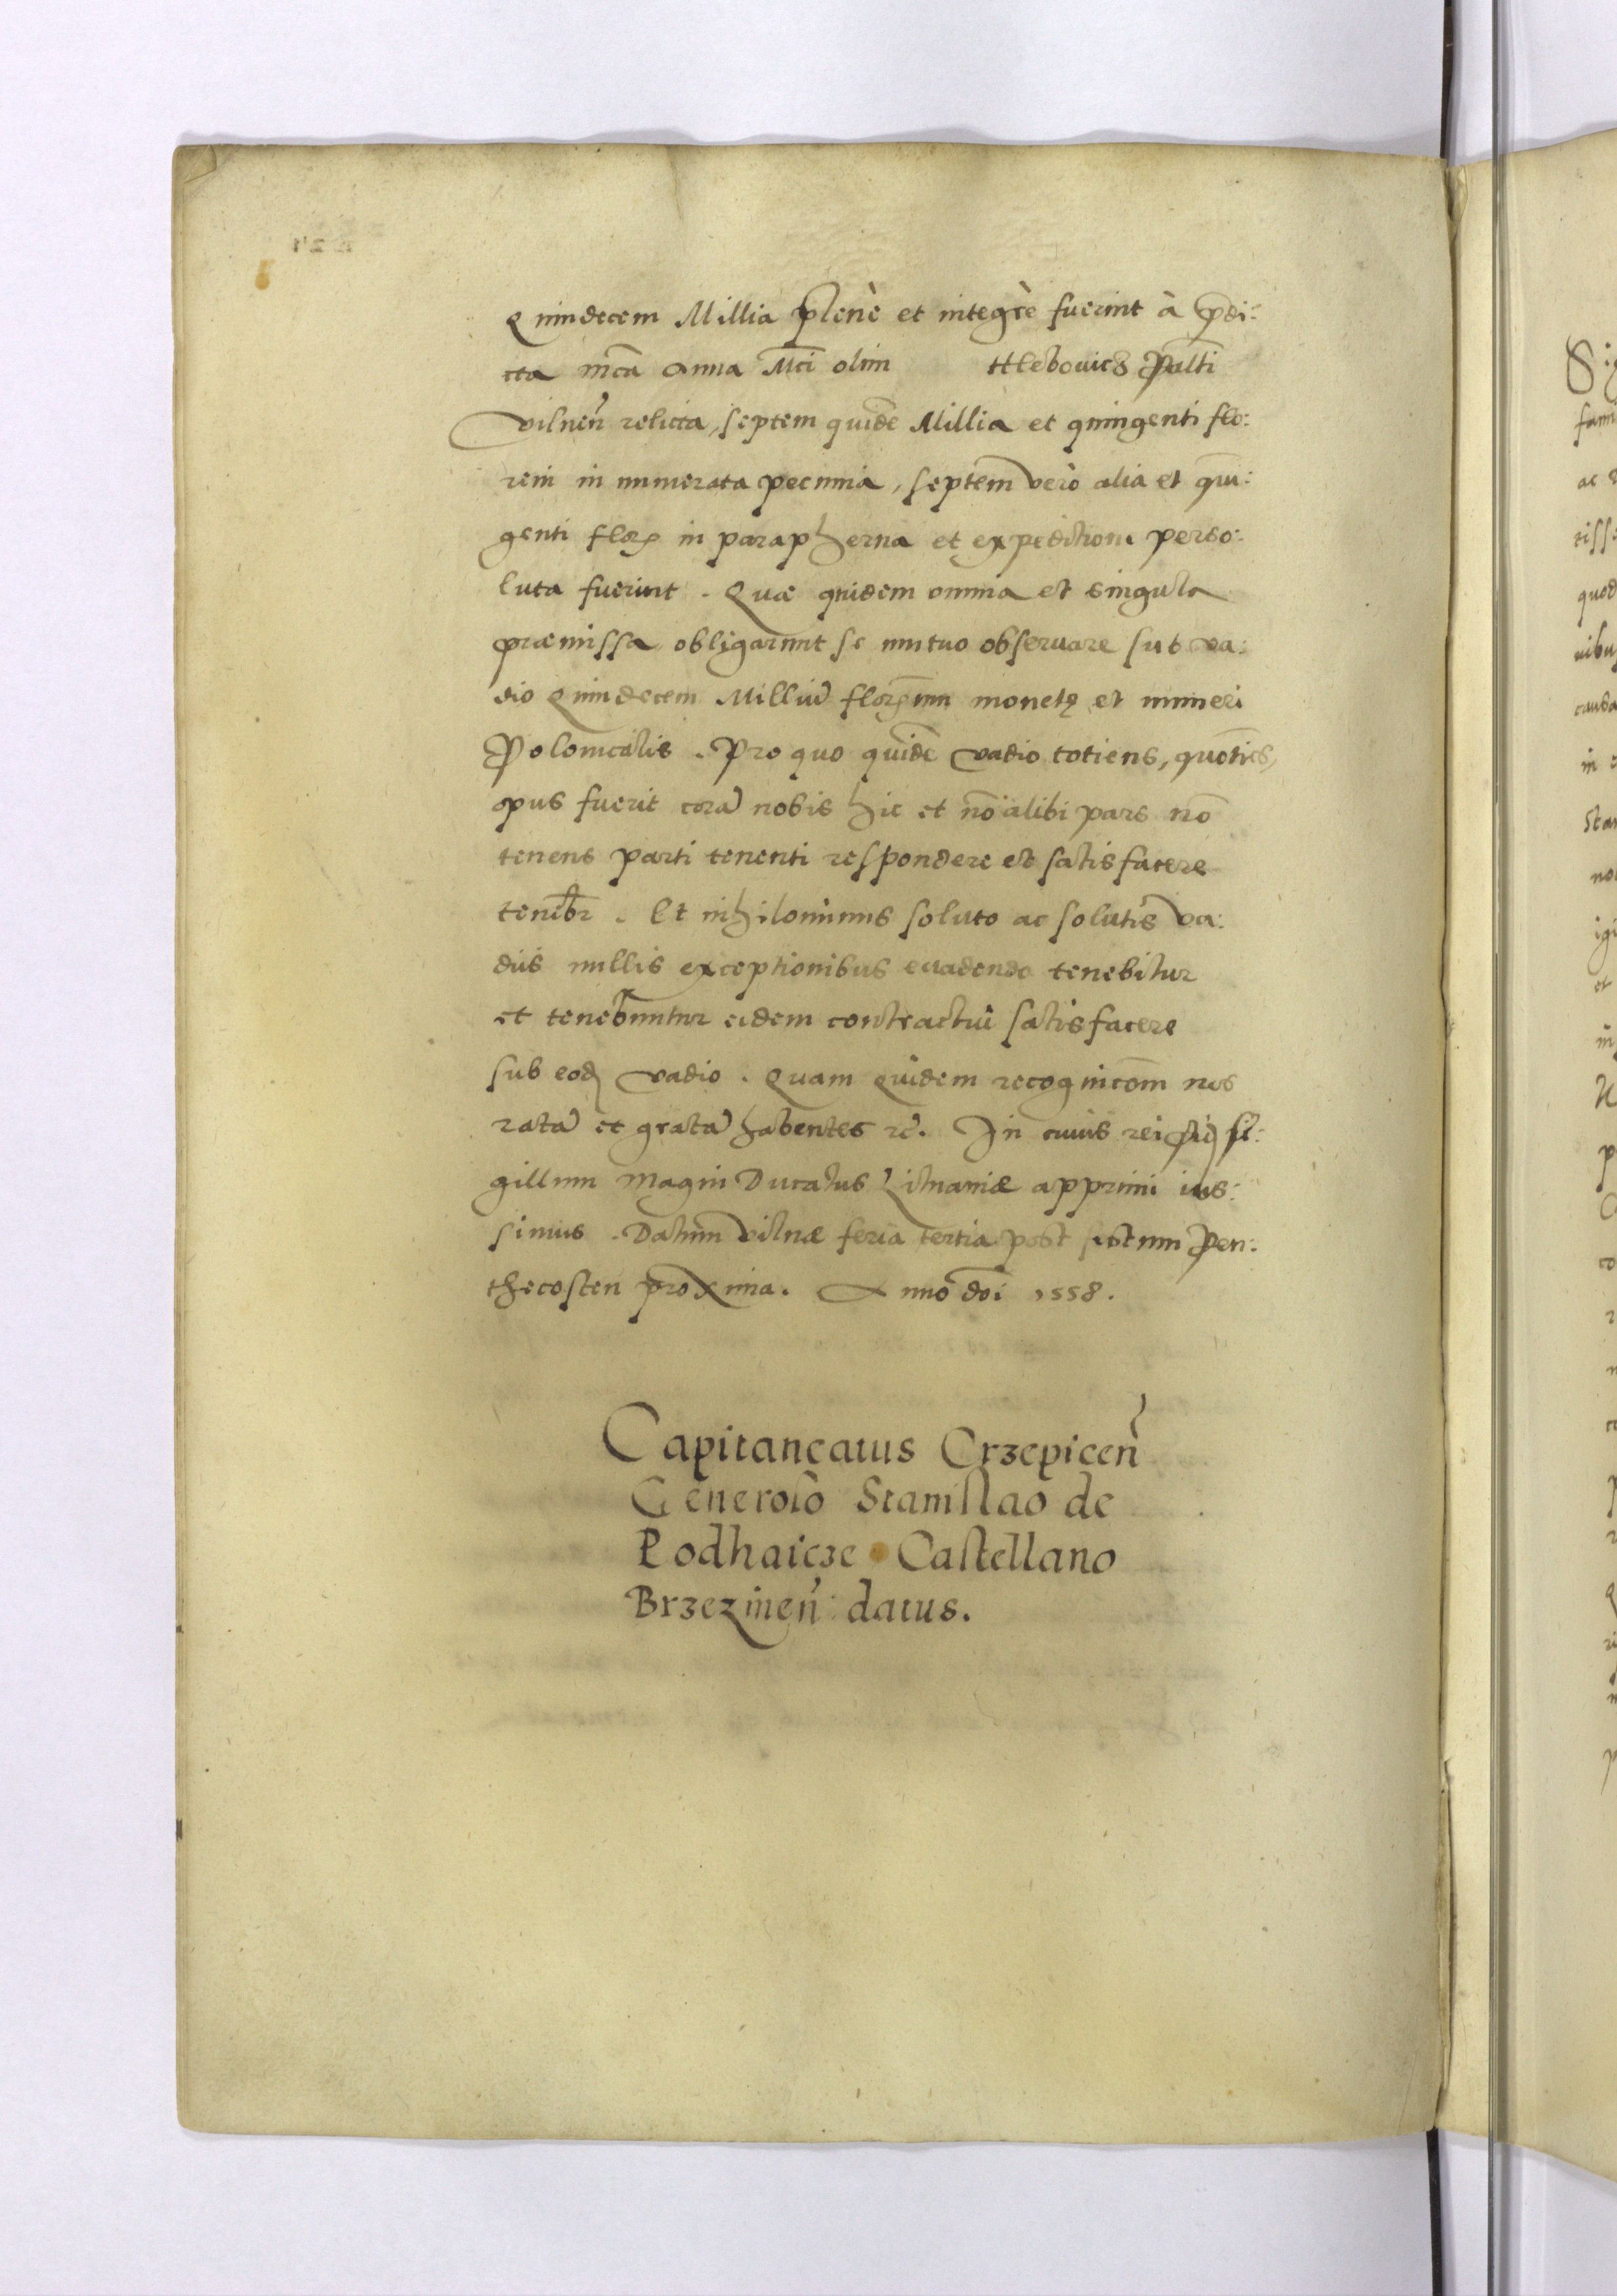 Quindecem Millia plenè et integrè fuerint à p̄di:
cta mcā Anna Mcī olim Hlebouicz Palti
Vilneñ relicta, septem quidē Millia et quingenti flo:
reni in numerata pecunia, septem̄ verò alia et quin:
genti flor in parapherna et expeditione perso:
luta fuerint. Quæ quidem omnia et singula
præmissa obligarunt se mutuo obseruare sub va:
dio Quindecem Milliū florenum monetę et numeri
Polonicalis. Pro quo quidē vadio totiens, quotiēs,
opus fuerit corā nobis hic et nō alibi pars nō
tenens parti tenenti respondere et satisfacere
tenebr. Et nihilominus soluto ac solutis va:
diis nullis exceptionibus euadendo tenebitur
et tenebuntur eidem contractui satisfacere
sub eod vadio. Quam quidem recognicōm nos
ratā et gratā habentes rc̄. In cuius rei fid si:
gillum Magni Ducatus Lituaniæ apprimi ius:
simus. Datum Vilnæ feria tertia post festum Pen:
thecosten proxima. Anno doī 1558.
Capitaneatus Crzepiceñ
Generoso Stanislao de
Podhaicze Castellano
Brzezineñ datus.